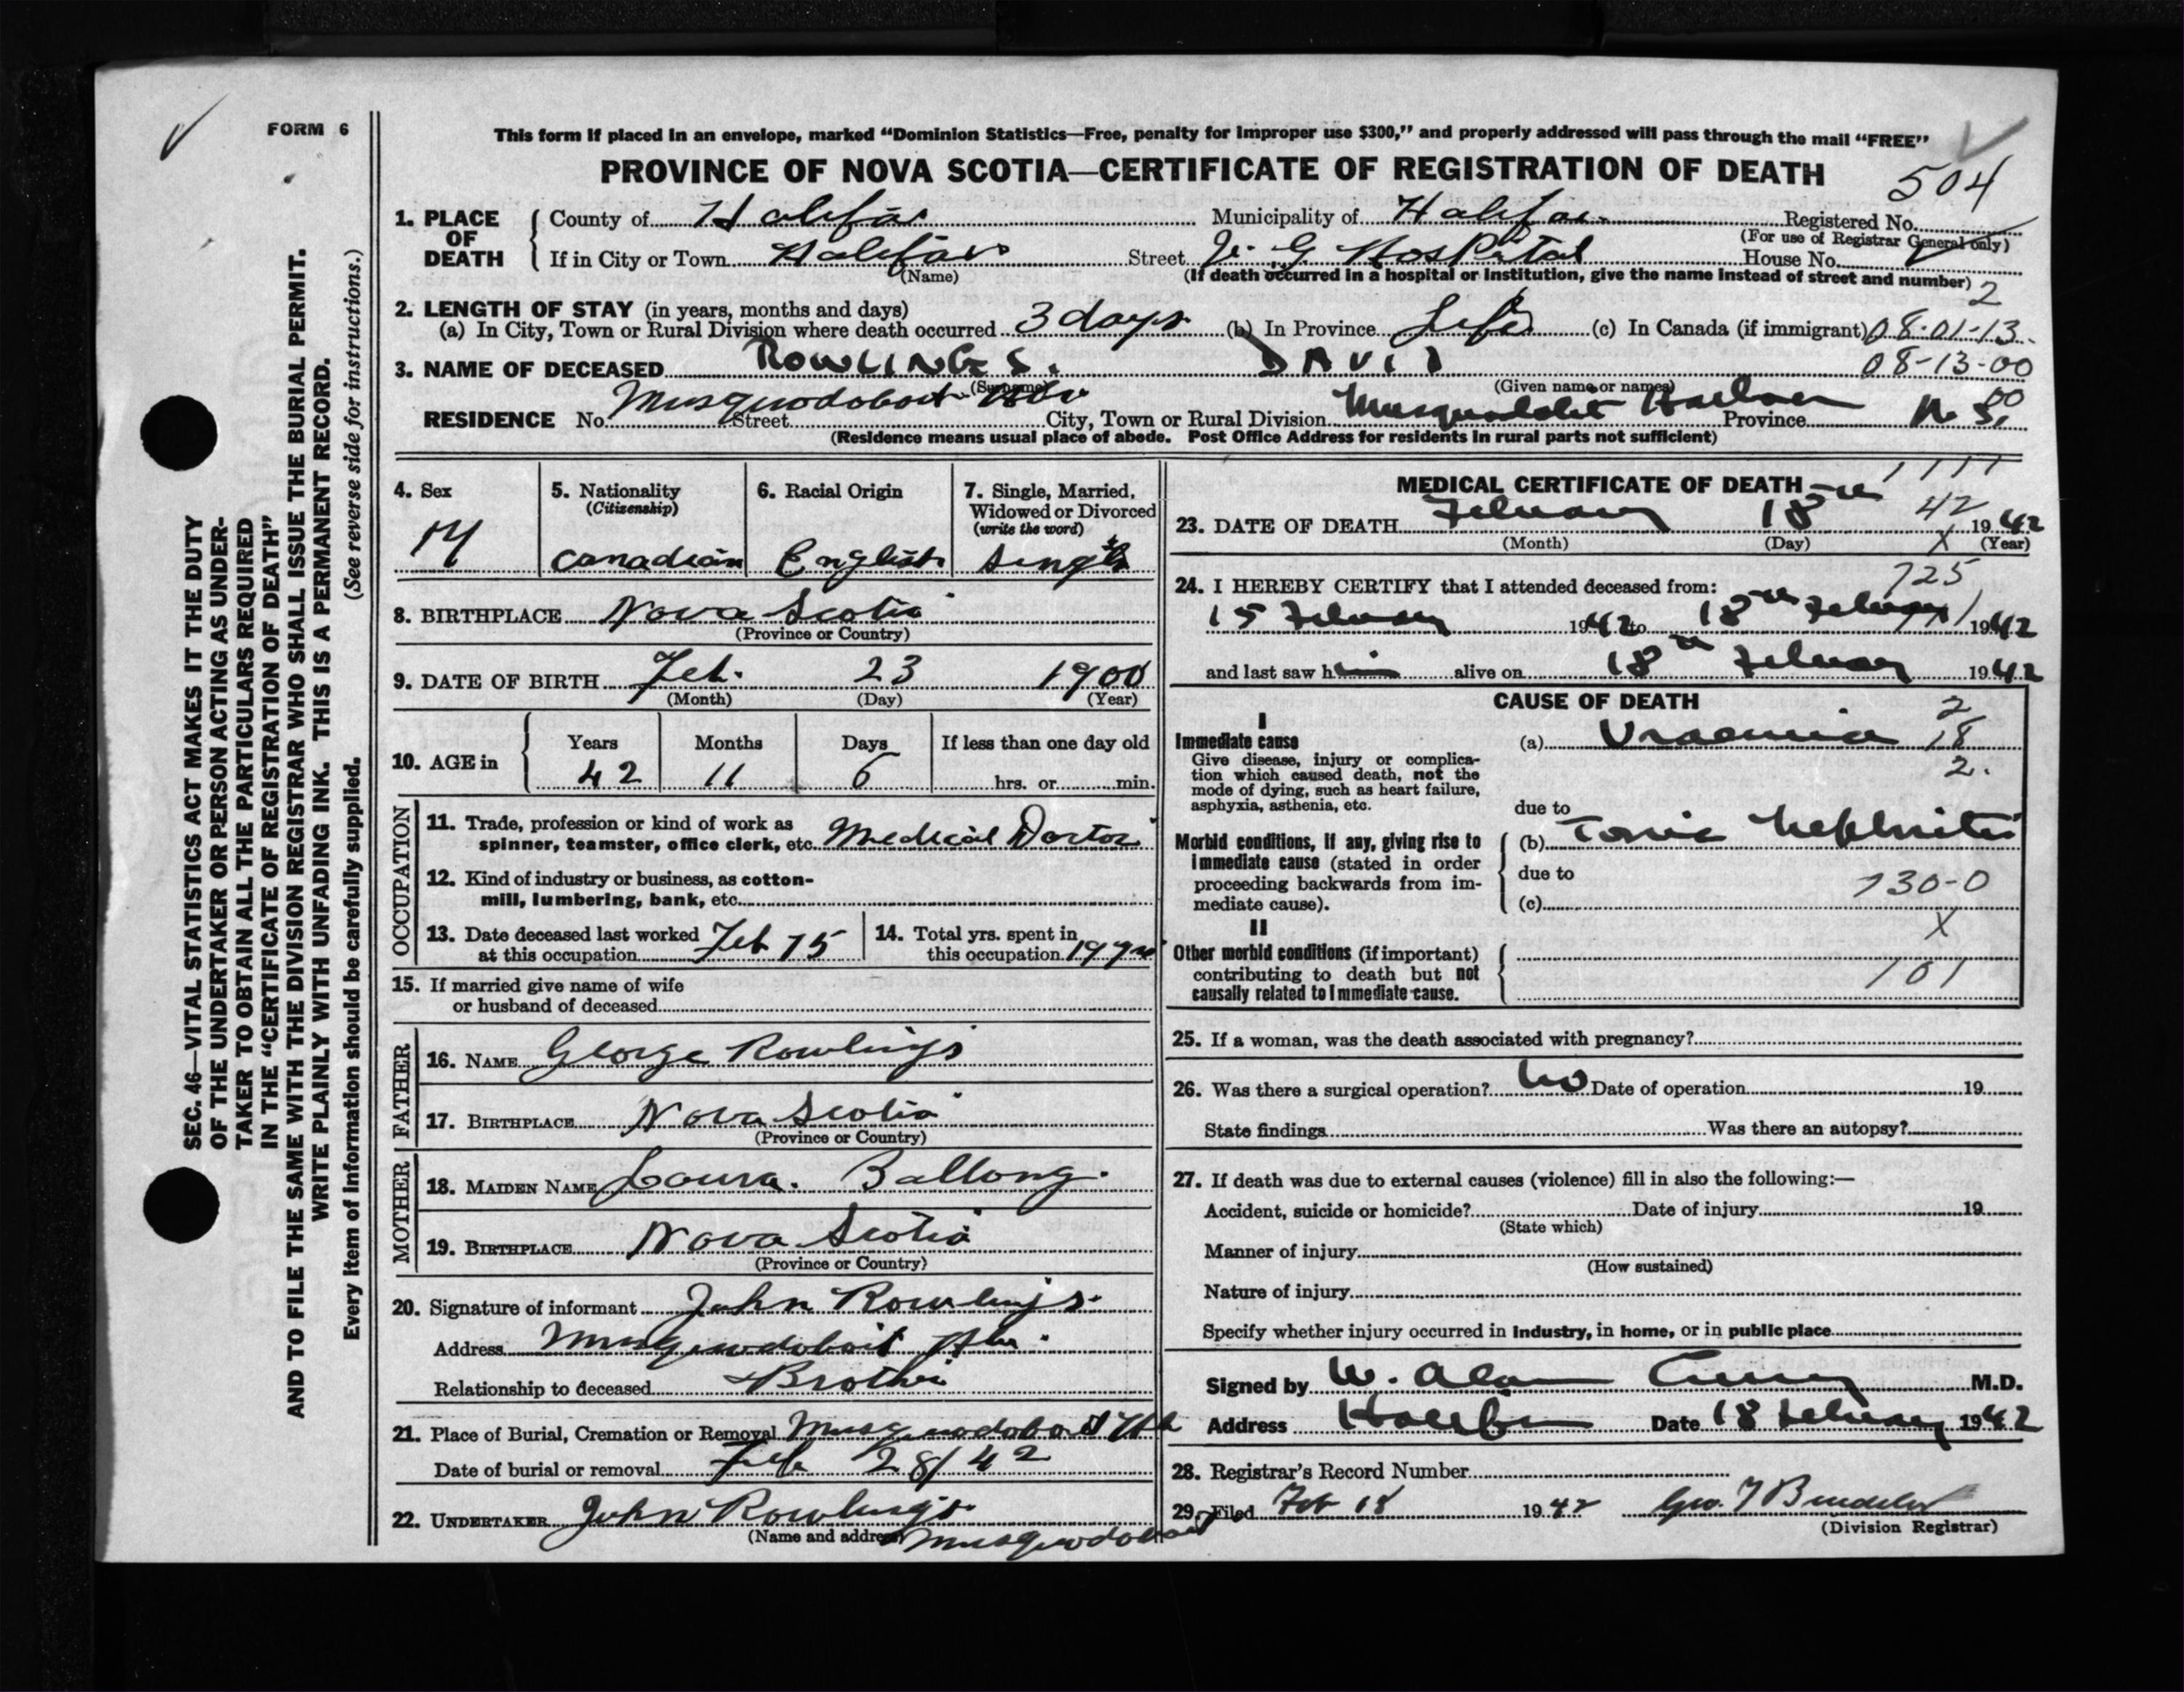 FORM 6
This form if placed in an envelope, marked “Dominion Statistics—Free, penalty for improper use $300,” and properly addressed will pass through the mail “FREE”
PROVINCE OF NOVA SCOTIA—CERTIFICATE OF REGISTRATION OF DEATH
504
1. PLACE OF DEATH
County of Halifax Municipality of Halifax Registered No.
(For use of Registrar General only)
If in City or Town Halifax Street V. G. Hospital House No.
(Name) (If death occurred in a hospital or institution, give the name instead of street and number)
2
2. LENGTH OF STAY (in years, months and days)
(a) In City, Town or Rural Division where death occurred 3 days (b) In Province Life (c) In Canada (if immigrant) 08-01-13
3. NAME OF DECEASED ROWLINGS. DAVID 08-13-00
(Surname) (Given name or names)
00
RESIDENCE No. Musquodoboit Hbr Street City, Town or Rural Division Musquodoboit Harbour Province N. S.
(Residence means usual place of abode. Post Office Address for residents in rural parts not sufficient)
4. Sex M
5. Nationality (Citizenship) Canadian
6. Racial Origin English
7. Single, Married, Widowed or Divorced (write the word) Single
8. BIRTHPLACE Nova Scotia
(Province or Country)
9. DATE OF BIRTH Feb. 23 1900
(Month) (Day) (Year)
10. AGE in Years Months Days If less than one day old
42 11 6 hrs. or min.
OCCUPATION
11. Trade, profession or kind of work as spinner, teamster, office clerk, etc. Medical Doctor
12. Kind of industry or business, as cotton-mill, lumbering, bank, etc.
13. Date deceased last worked at this occupation Feb 15
14. Total yrs. spent in this occupation
15. If married give name of wife or husband of deceased
FATHER
16. NAME George Rowlings
17. BIRTHPLACE Nova Scotia
(Province or Country)
MOTHER
18. MAIDEN NAME Laura. Ballong.
19. BIRTHPLACE Nova Scotia
(Province or Country)
20. Signature of informant John Rowlings.
Address Musquodoboit Hbr.
Relationship to deceased Brother
21. Place of Burial, Cremation or Removal Musquodoboit Hbr
Date of burial or removal Feb 28/42
22. UNDERTAKER John Rowlings
(Name and address) Musquodoboit
MEDICAL CERTIFICATE OF DEATH
1111
42
23. DATE OF DEATH February 18th 1942
(Month) (Day) (Year)
X
725
24. I HEREBY CERTIFY that I attended deceased from:
15 February 1942 to 18th February 1942
and last saw him alive on 18th February 1942
CAUSE OF DEATH
I
Immediate cause
Give disease, injury or complication which caused death, not the mode of dying, such as heart failure, asphyxia, asthenia, etc.
(a) Uraemia
2
18
2.
due to
Morbid conditions, if any, giving rise to immediate cause (stated in order proceeding backwards from immediate cause).
(b) Toxic Nephritis
due to
130-0
(c)
X
II
Other morbid conditions (if important) contributing to death but not causally related to immediate cause.
101
25. If a woman, was the death associated with pregnancy?
26. Was there a surgical operation? No Date of operation 19
State findings Was there an autopsy?
27. If death was due to external causes (violence) fill in also the following:—
Accident, suicide or homicide? Date of injury 19
(State which)
Manner of injury
(How sustained)
Nature of injury
Specify whether injury occurred in industry, in home, or in public place
Signed by W. Alan Curry M.D.
Address Halifax Date 18 February 1942
28. Registrar's Record Number
29. Filed Feb 18 1942 Geo.
(Division Registrar)
SEC. 46—VITAL STATISTICS ACT MAKES IT THE DUTY
OF THE UNDERTAKER OR PERSON ACTING AS UNDER-
TAKER TO OBTAIN ALL THE PARTICULARS REQUIRED
IN THE “CERTIFICATE OF REGISTRATION OF DEATH”
AND TO FILE THE SAME WITH THE DIVISION REGISTRAR WHO SHALL ISSUE THE BURIAL PERMIT.
WRITE PLAINLY WITH UNFADING INK. THIS IS A PERMANENT RECORD.
Every item of information should be carefully supplied. (See reverse side for instructions.)